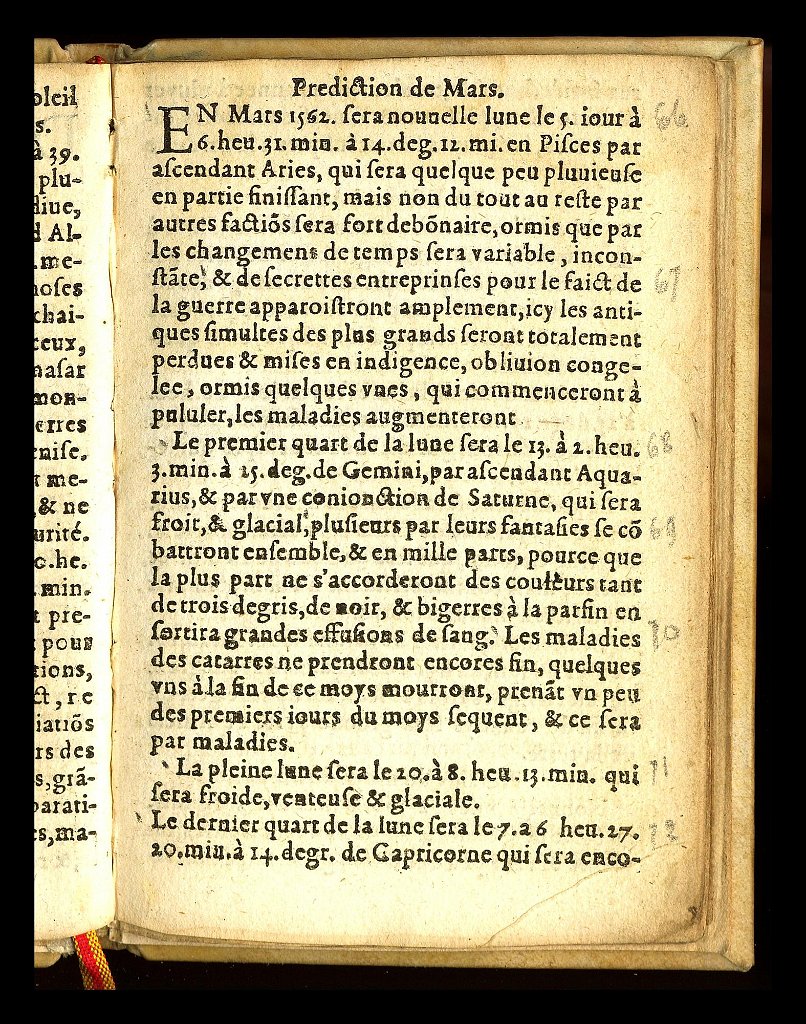 oleil
s.
à 39.
plu-
diue,
d Al-
.me-
hoses
chai-
ceux,
nasar
mon-
erres
enise.
me-
, & ne
urité.
o.he.
.min.
pre-
pour
tions,
ct, re
iatiõs
rs des
s, grã-
parati-
es, ma-
Prediction de Mars.
EN Mars 1562. sera nouuelle lune le 5. iour à
6. heu. 31. min. à 14. deg. 12. mi. en Pisces par
ascendant Aries, qui sera quelque peu pluuieuse
en partie finissant, mais non du tout au reste par
autres factiõs sera fort debõnaire, ormis que par
les changemens de temps sera variable, incon-
stãte, & de secrettes entreprinses pour le faict de
la guerre apparoistront amplement, icy les anti-
ques simultes des plus grands seront totalement
perdues & mises en indigence, obliuion conge-
lee, ormis quelques vnes, qui commenceront à
pululer, les maladies augmenteront
Le premier quart de la lune sera le 13. à 2. heu.
3. min. à 15. deg. de Gemini, par ascendant Aqua-
rius, & par vne conionction de Saturne, qui sera
froit, & glacial, plusieurs par leurs fantasies se cõ
battront ensemble, & en mille parts, pource que
la plus part ne s'accorderont des couleurs tant
de trois degris, de noir, & bigerres à la parfin en
sortira grandes effusions de sang. Les maladies
des catarres ne prendront encores fin, quelques
vns à la fin de ce moys mourront, prenãt vn peu
des premiers iours du moys sequent, & ce sera
par maladies.
La pleine lune sera le 20. à 8. heu. 13. min. qui
sera froide, venteuse & glaciale.
Le dernier quart de la lune sera le 7. a 6 heu. 27.
20. min. à 14. degr. de Capricorne qui sera enco-
66
67
68
69
70
71
72